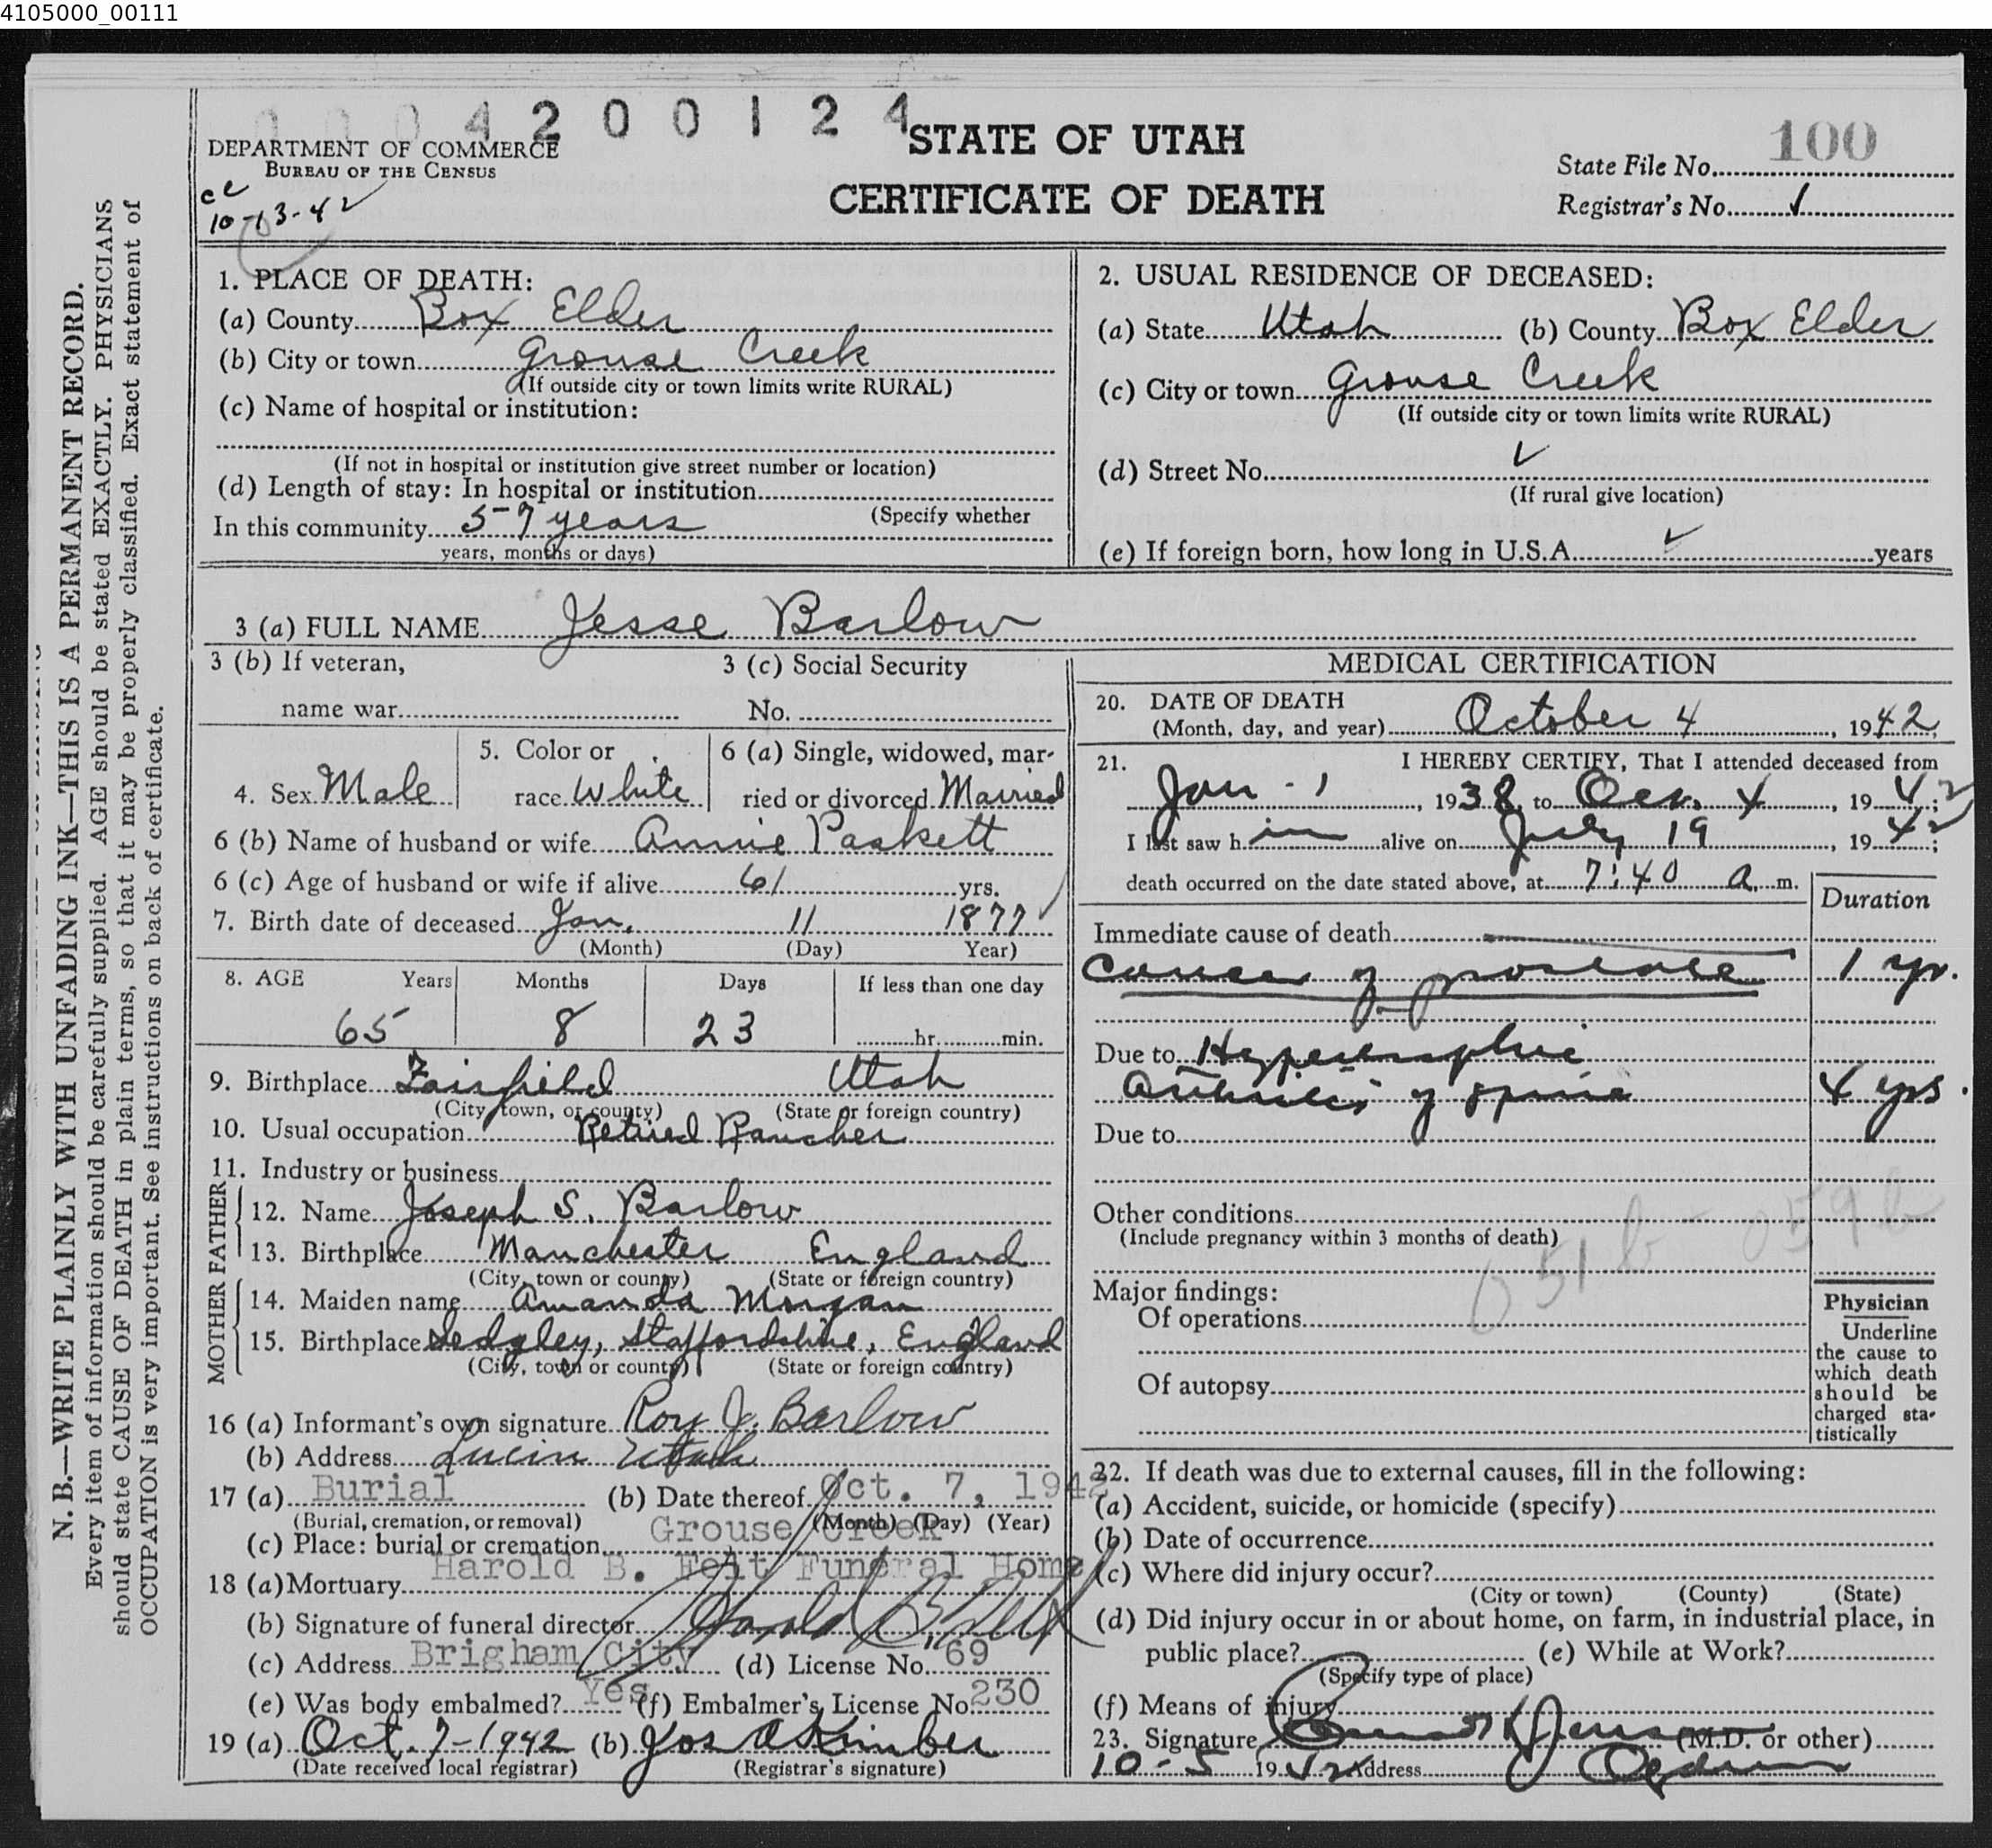 4105000_00111
0004200124
DEPARTMENT OF COMMERCE
BUREAU OF THE CENSUS
cc
10-13-42
STATE OF UTAH
CERTIFICATE OF DEATH
State File No. 100
Registrar's No. 1
N. B.—WRITE PLAINLY WITH UNFADING INK—THIS IS A PERMANENT RECORD.
Every item of information should be carefully supplied. AGE should be stated EXACTLY. PHYSICIANS
should state CAUSE OF DEATH in plain terms, so that it may be properly classified. Exact statement of
OCCUPATION is very important. See instructions on back of certificate.
1. PLACE OF DEATH:
(a) County Box Elder
(b) City or town Grouse Creek
(If outside city or town limits write RURAL)
(c) Name of hospital or institution:
(If not in hospital or institution give street number or location)
(d) Length of stay: In hospital or institution
(Specify whether
In this community 57 years
years, months or days)
2. USUAL RESIDENCE OF DECEASED:
(a) State Utah (b) County Box Elder
(c) City or town Grouse Creek
(If outside city or town limits write RURAL)
(d) Street No. ✓
(If rural give location)
(e) If foreign born, how long in U.S.A. ✓ years
3 (a) FULL NAME Jesse Barlow
3 (b) If veteran,
name war
3 (c) Social Security
No.
4. Sex Male
5. Color or
race White
6 (a) Single, widowed, mar-
ried or divorced Married
6 (b) Name of husband or wife Annie Paskett
6 (c) Age of husband or wife if alive 61 yrs.
7. Birth date of deceased Jan. 11 1877
(Month) (Day) Year)
8. AGE Years Months Days If less than one day
65 8 23 hr. min.
9. Birthplace Fairfield Utah
(City, town, or county) (State or foreign country)
10. Usual occupation Retired Rancher
11. Industry or business
FATHER
12. Name Joseph S. Barlow
13. Birthplace Manchester England
(City, town or county) (State or foreign country)
MOTHER
14. Maiden name Amanda Morgan
15. Birthplace Sedgley, Staffordshire, England
(City, town or county) (State or foreign country)
16 (a) Informant's own signature Roy J. Barlow
(b) Address Lucin Utah
17 (a) Burial (b) Date thereof Oct. 7, 1942
(Burial, cremation, or removal) (Month) (Day) (Year)
(c) Place: burial or cremation Grouse Creek
18 (a) Mortuary Harold B. Felt Funeral Home
(b) Signature of funeral director Harold B. Felt
(c) Address Brigham City (d) License No. 69
(e) Was body embalmed? Yes (f) Embalmer's License No. 230
19 (a) Oct. 7-1942 (b) Jos A Kimber
(Date received local registrar) (Registrar's signature)
MEDICAL CERTIFICATION
20. DATE OF DEATH
(Month, day, and year) October 4, 1942
21. I HEREBY CERTIFY, That I attended deceased from
Jan - 1, 1938, to Oct. 4, 1942;
I last saw him alive on July 19, 1942;
death occurred on the date stated above, at 7:40 a. m.
Duration
Immediate cause of death
Cancer of prostate 1 yr.
Due to Hypertrophic
arthritis of spine 4 yrs.
Due to
Other conditions
(Include pregnancy within 3 months of death)
051b - 059b
Major findings:
Of operations
Of autopsy
Physician
Underline
the cause to
which death
should be
charged sta-
tistically
22. If death was due to external causes, fill in the following:
(a) Accident, suicide, or homicide (specify)
(b) Date of occurrence
(c) Where did injury occur?
(City or town) (County) (State)
(d) Did injury occur in or about home, on farm, in industrial place, in
public place? (e) While at Work?
(Specify type of place)
(f) Means of injury
23. Signature (M.D. or other)
10-5 1942 Address Ogden